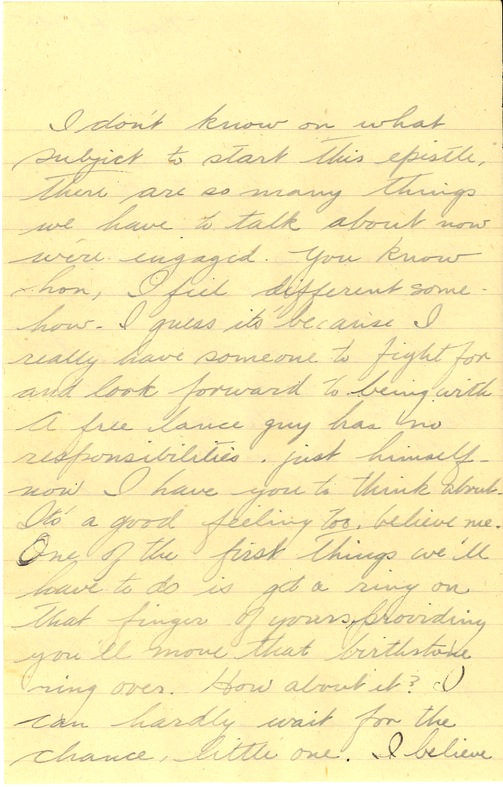 I don't know on what
subject to start this epistle,
there are so many things
we have to talk about now
we're engaged. You know
hon, I feel different some-
how. I guess its because I
really have someone to fight for
and look forward to being with
A free lance guy has no
responsibilities. just himself-
now I have you to think about.
It's a good feeling too, believe me.
One of the first things we'll
have to do is get a ring on
that finger of yours, providing
you'll move that birthstone
ring over. How about it? I
can hardly wait for the
chance, little one. I believe